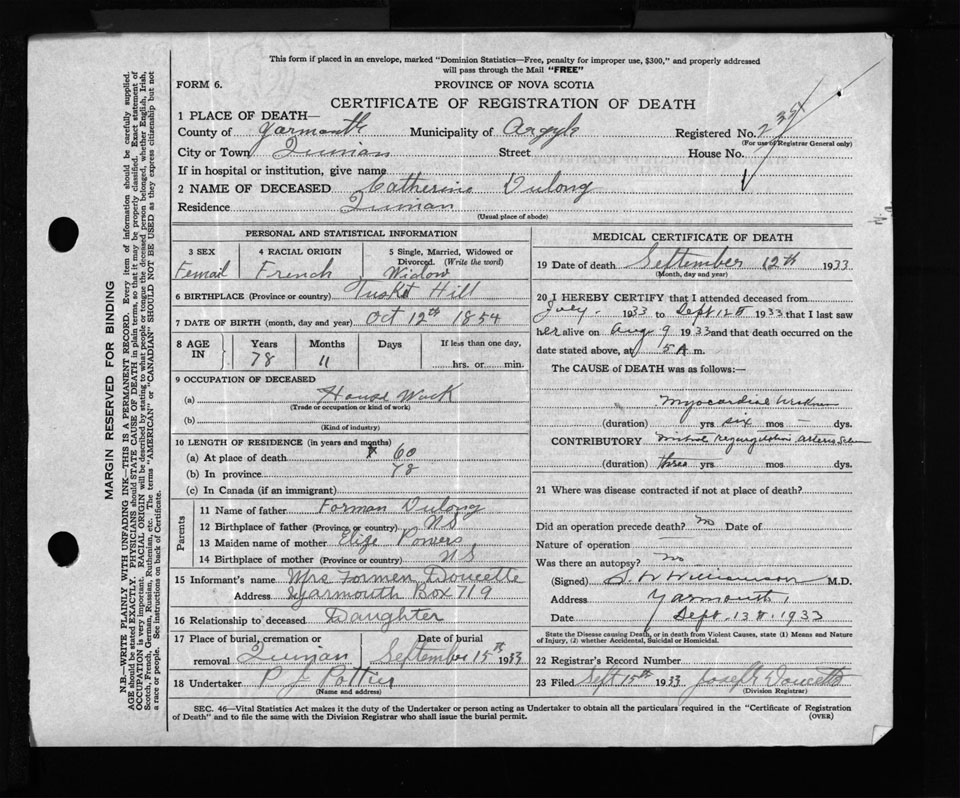 This form if placed in an envelope, marked "Dominion Statistics—Free, penalty for improper use, $300," and properly addressed
will pass through the Mail "FREE"
FORM 6.
PROVINCE OF NOVA SCOTIA
CERTIFICATE OF REGISTRATION OF DEATH
1 PLACE OF DEATH—
County of Yarmouth Municipality of Argyle Registered No.
(For use of Registrar General only)
City or Town Quinan Street House No.
If in hospital or institution, give name
2 NAME OF DECEASED Catherine Dulong
Residence Quinan
(Usual place of abode)
PERSONAL AND STATISTICAL INFORMATION
3 SEX 4 RACIAL ORIGIN 5 Single, Married, Widowed or
Divorced. (Write the word)
Femail French Widow
6 BIRTHPLACE (Province or country) Tusket Hill
7 DATE OF BIRTH (month, day and year) Oct 12th 1854
8 AGE IN Years Months Days If less than one day,
78 11 hrs. or min.
9 OCCUPATION OF DECEASED
(a) House Work
(Trade or occupation or kind of work)
(b)
(Kind of industry)
10 LENGTH OF RESIDENCE (in years and months)
(a) At place of death 60
(b) In province 78
(c) In Canada (if an immigrant)
Parents
11 Name of father Forman Dulong
12 Birthplace of father (Province or country) NS
13 Maiden name of mother Elize Powers
14 Birthplace of mother (Province or country) NS
15 Informant's name Mrs Formen Doucette
Address Yarmouth Box 719
16 Relationship to deceased Daughter
17 Place of burial, cremation or Date of burial
removal Quinan September 15th 1933
18 Undertaker P J Pottier
(Name and address)
MEDICAL CERTIFICATE OF DEATH
19 Date of death September 12th 1933
(Month, day and year)
20 I HEREBY CERTIFY that I attended deceased from
July 1933 to Sept 12th 1933 that I last saw
her alive on Aug 9 1933 and that death occurred on
date stated above, at 5 A m.
The CAUSE of DEATH was as follows:—
Myocardial
(duration) yrs six mos — dys.
CONTRIBUTORY mitral regurgitation
(duration) three yrs mos dys.
21 Where was disease contracted if not at place of death?
Did an operation precede death? No Date of
Nature of operation —
Was there an autopsy? No
(Signed) Williamson M.D.
Address Yarmouth,
Date Sept 13th, 1933
State the Disease causing Death, or in death from Violent Causes, state (1) Means and Nature
of Injury, (2) whether Accidental, Suicidal or Homicidal.
22 Registrar's Record Number
23 Filed Sept 15th 1933 Joseph Doucette
(Division Registrar)
SEC. 46—Vital Statistics Act makes it the duty of the Undertaker or person acting as Undertaker to obtain all the particulars required in the "Certificate of Registration
of Death" and to file the same with the Division Registrar who shall issue the burial permit.
(OVER)
MARGIN RESERVED FOR BINDING
N.B.—WRITE PLAINLY WITH UNFADING INK—THIS IS A PERMANENT RECORD. Every item of information should be carefully supplied.
AGE should be stated EXACTLY. PHYSICIANS should STATE CAUSE OF DEATH in plain terms, so that it may be properly classified. Exact statement of
OCCUPATION is very important. RACIAL ORIGIN will be described by stating to what people or tongue the deceased person belonged, whether English, Irish,
Scotch, French, German, Russian, Ruthenian, etc. The terms "AMERICAN" or "CANADIAN" SHOULD NOT BE USED as they express citizenship but not
a race or people. See instructions on back of Certificate.